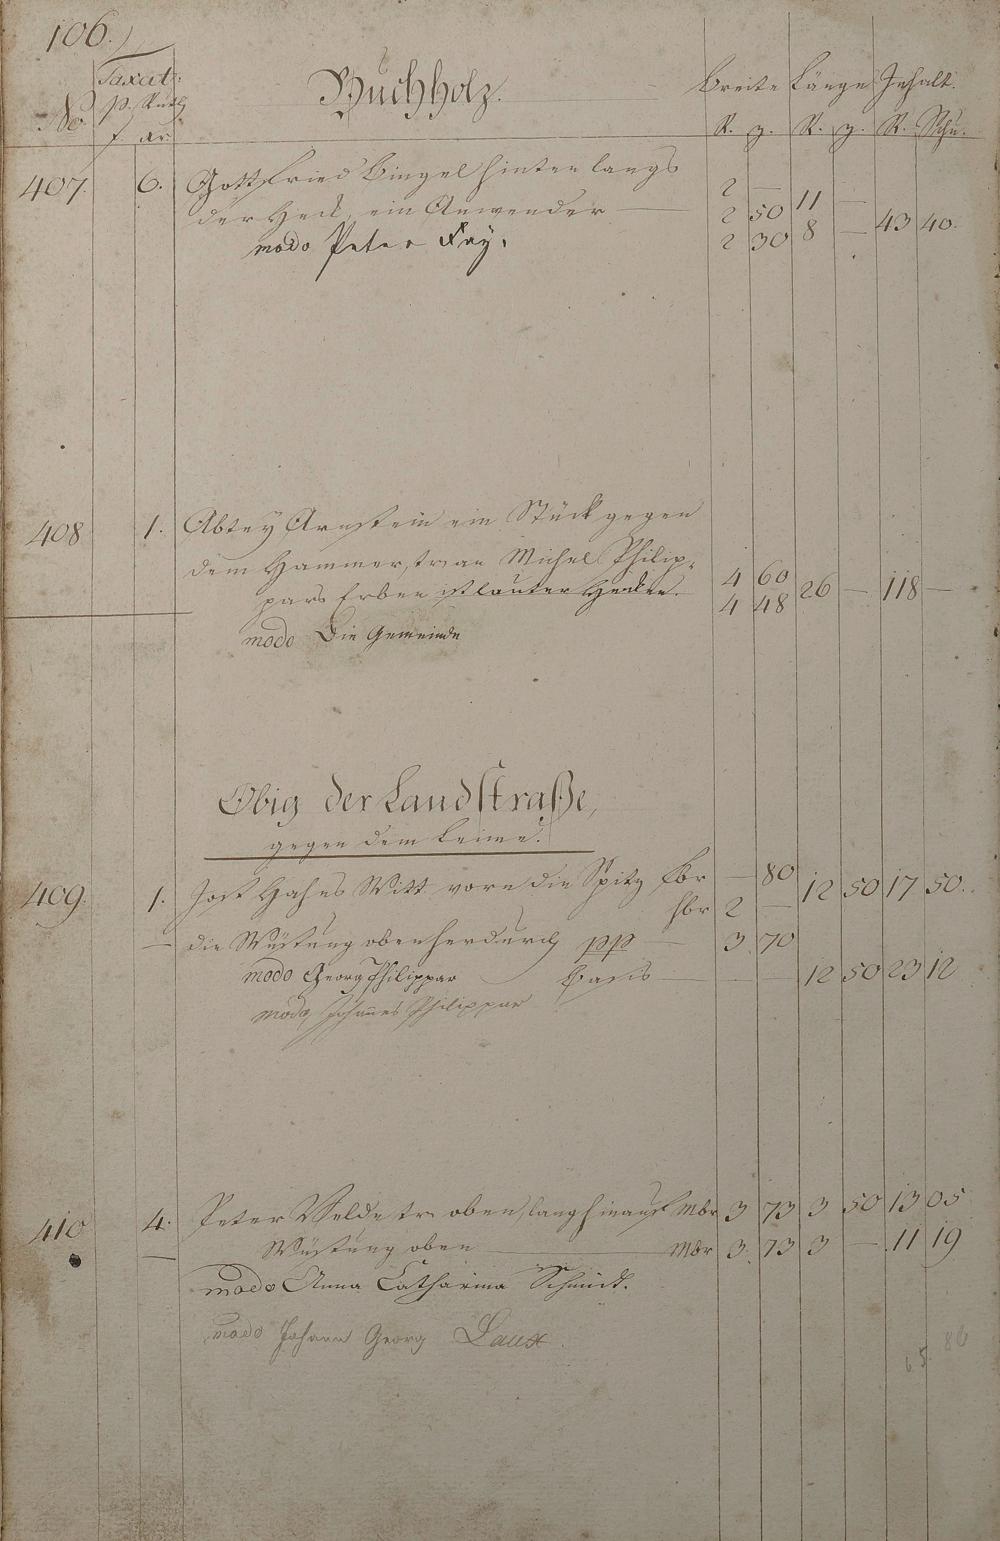 106.
Taxat:
No p. Ruth
f. xr.
Buchholz.
Breite Länge Inhalt.
R. g. R. g. R. Schu.
407. 6. Gottfried Bingel hinten langs 2 —
der Heck, ein Anwender — 2 50 11 —
modo Peter Fay. 2 30 8 — 43 40.
408 1. Abtey Arnstein ein Stück gegen
dem Hammer, modo Michel Philip- 4 60
pars Erben ist lauter Hecken. 4 48 26 — 118 —
modo Die Gemeinde
Obig der Landstraße,
gegen dem Leime.
409. 1. Jost Hahns Witt vorn die Spitz fbr — 80 12 50 17 50.
hbr 2 —
— die Wüstung obenherdurch pp — 3 70
modo Georg Philippar Basis — — — 12 50 23 12
modo Johannes Philippar
410 4. Peter oben, lang hinauf Mbr 3 73 3 50 13 05
— Wüstung oben — Mbr 3. 73 3 — 11 19
modo Anna Catharina Schmidt.
modo Johann Georg Laux.
65 86